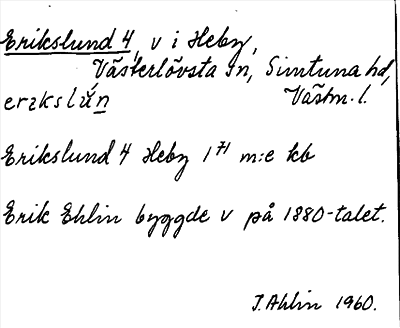 Erikslund 4, v i Heby,
Västerlövsta sn, Simtuna hd,
erikslún Västm. l.
Erikslund 4 Heby 1⁷¹ m:e kb
Erik Ehlin byggde v på 1880-talet.
J. Ahlin 1960.